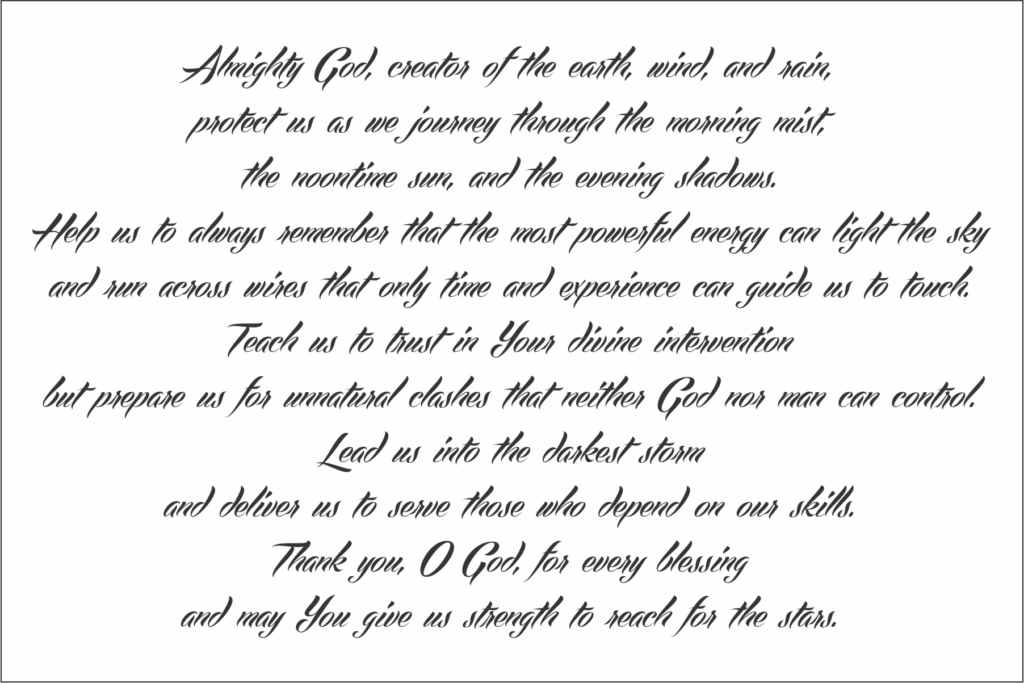 Almighty God, creator of the earth, wind, and rain,
protect us as we journey through the morning mist,
the noontime sun, and the evening shadows.
Help us to always remember that the most powerful energy can light the sky
and run across wires that only time and experience can guide us to touch.
Teach us to trust in Your divine intervention
but prepare us for unnatural clashes that neither God nor man can control.
Lead us into the darkest storm
and deliver us to serve those who depend on our skills.
Thank you, O God, for every blessing
and may You give us strength to reach for the stars.